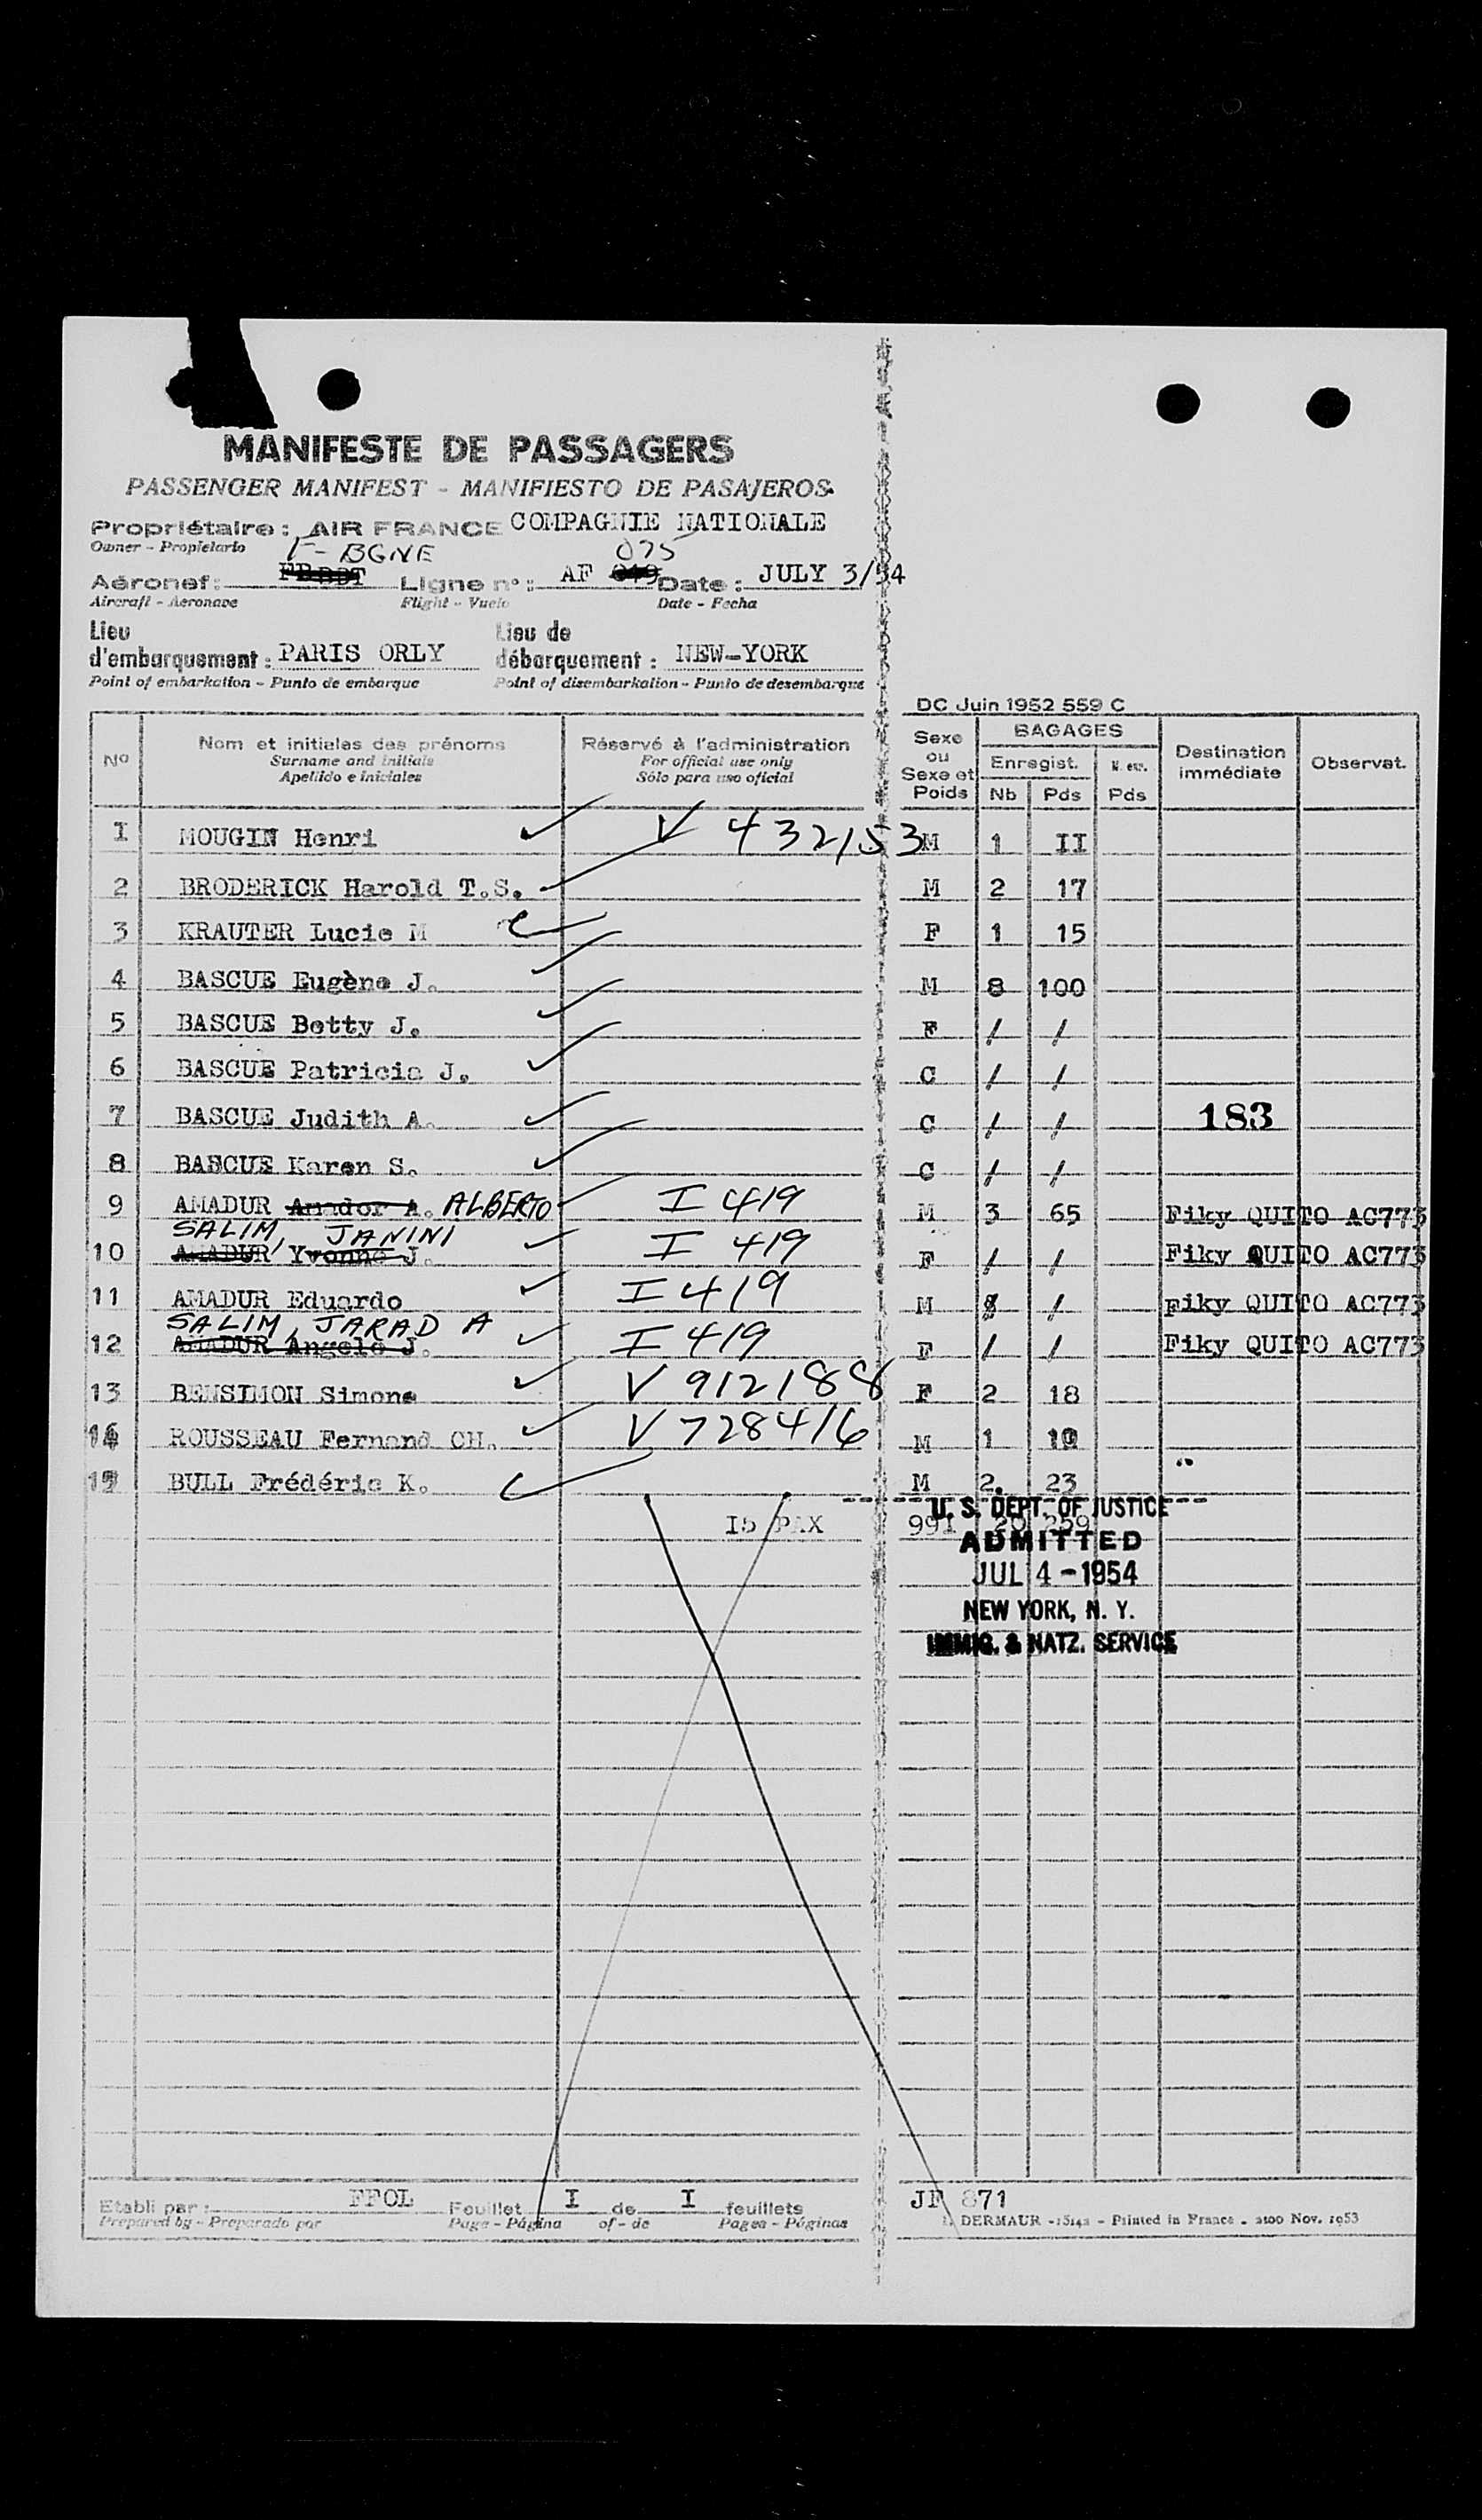 MANIFESTE DE PASSAGERS
PASSENGER MANIFEST - MANIFIESTO DE PASAJEROS
Propriétaire : AIR FRANCE COMPAGNIE NATIONALE
Owner - Propietario
F-BGNE 075
Aéronef: Ligne n° : AF Date : JULY 3/54
Aircraft - Aeronave Flight - Vuelo Date - Fecha
Lieu d'embarquement : PARIS ORLY Lieu de débarquement : NEW-YORK
Point of embarkation - Punto de embarque Point of disembarkation - Punto de desembarque
DC Juin 1952 559 C
Nº Nom et initiales des prénoms Réservé à l'administration Sexe ou Sexe et Poids BAGAGES Destination immédiate Observat.
Surname and initials For official use only Enregist.
Apellido e iniciales Sólo para uso oficial Nb Pds Pds
I MOUGIN Henri V 432153 M 1 II
2 BRODERICK Harold T.S. M 2 17
3 KRAUTER Lucie M F 1 15
4 BASCUE Eugène J. M 8 100
5 BASCUE Betty J. F / /
6 BASCUE Patricia J. C / /
7 BASCUE Judith A. C / / 183
8 BASCUE Karen S. C / /
9 AMADUR Amador A. ALBERTO I 419 M 3 65 Fiky QUITO AC773
SALIM, JANINI
10 AMADUR Yvonne J. I 419 F / / Fiky QUITO AC773
11 AMADUR Eduardo I 419 M / Fiky QUITO AC773
SALIM, JARAD A
12 AMADUR Angele J. I 419 F / / Fiky QUITO AC773
13 BENSIMON Simone V 912188 F 2 18
14 ROUSSEAU Fernand CH. V 728416 M 1 10
15 BULL Frédéric K. M 2. 23
I5 PAX 991 20 259
U. S. DEPT. OF JUSTICE
ADMITTED
JUL 4 - 1954
NEW YORK, N. Y.
IMMIG. & NATZ. SERVICE
Etabli par : FFOL Feuillet I de I feuillets JF 871
Prepared by - Preparado por Page - Página of - de Pages - Páginas DERMAUR - Printed in France - Nov. 1953